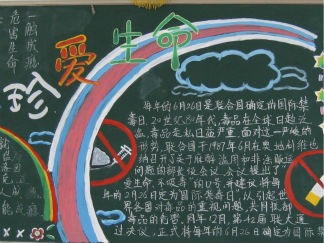 一触成瘾
危害生命
珍爱生命
每年的6月26日是联合国确定的国际禁
毒日。20世纪80年代，毒品在全球日趋泛
滥，毒品走私日益严重。面对这一严峻的
形势，联合国于1987年6月在奥地利维也
纳召开了关于麻醉品滥用和非法贩运
问题的部长级会议。会议提出了
爱生命，不吸毒的口号，并建议将每
年的6月26日定为国际禁毒日，以引起世
界各国对毒品的重视，
毒品的危害。同年12月，第42届联大通
过决议，正式将每年的6月26日确定为国际禁